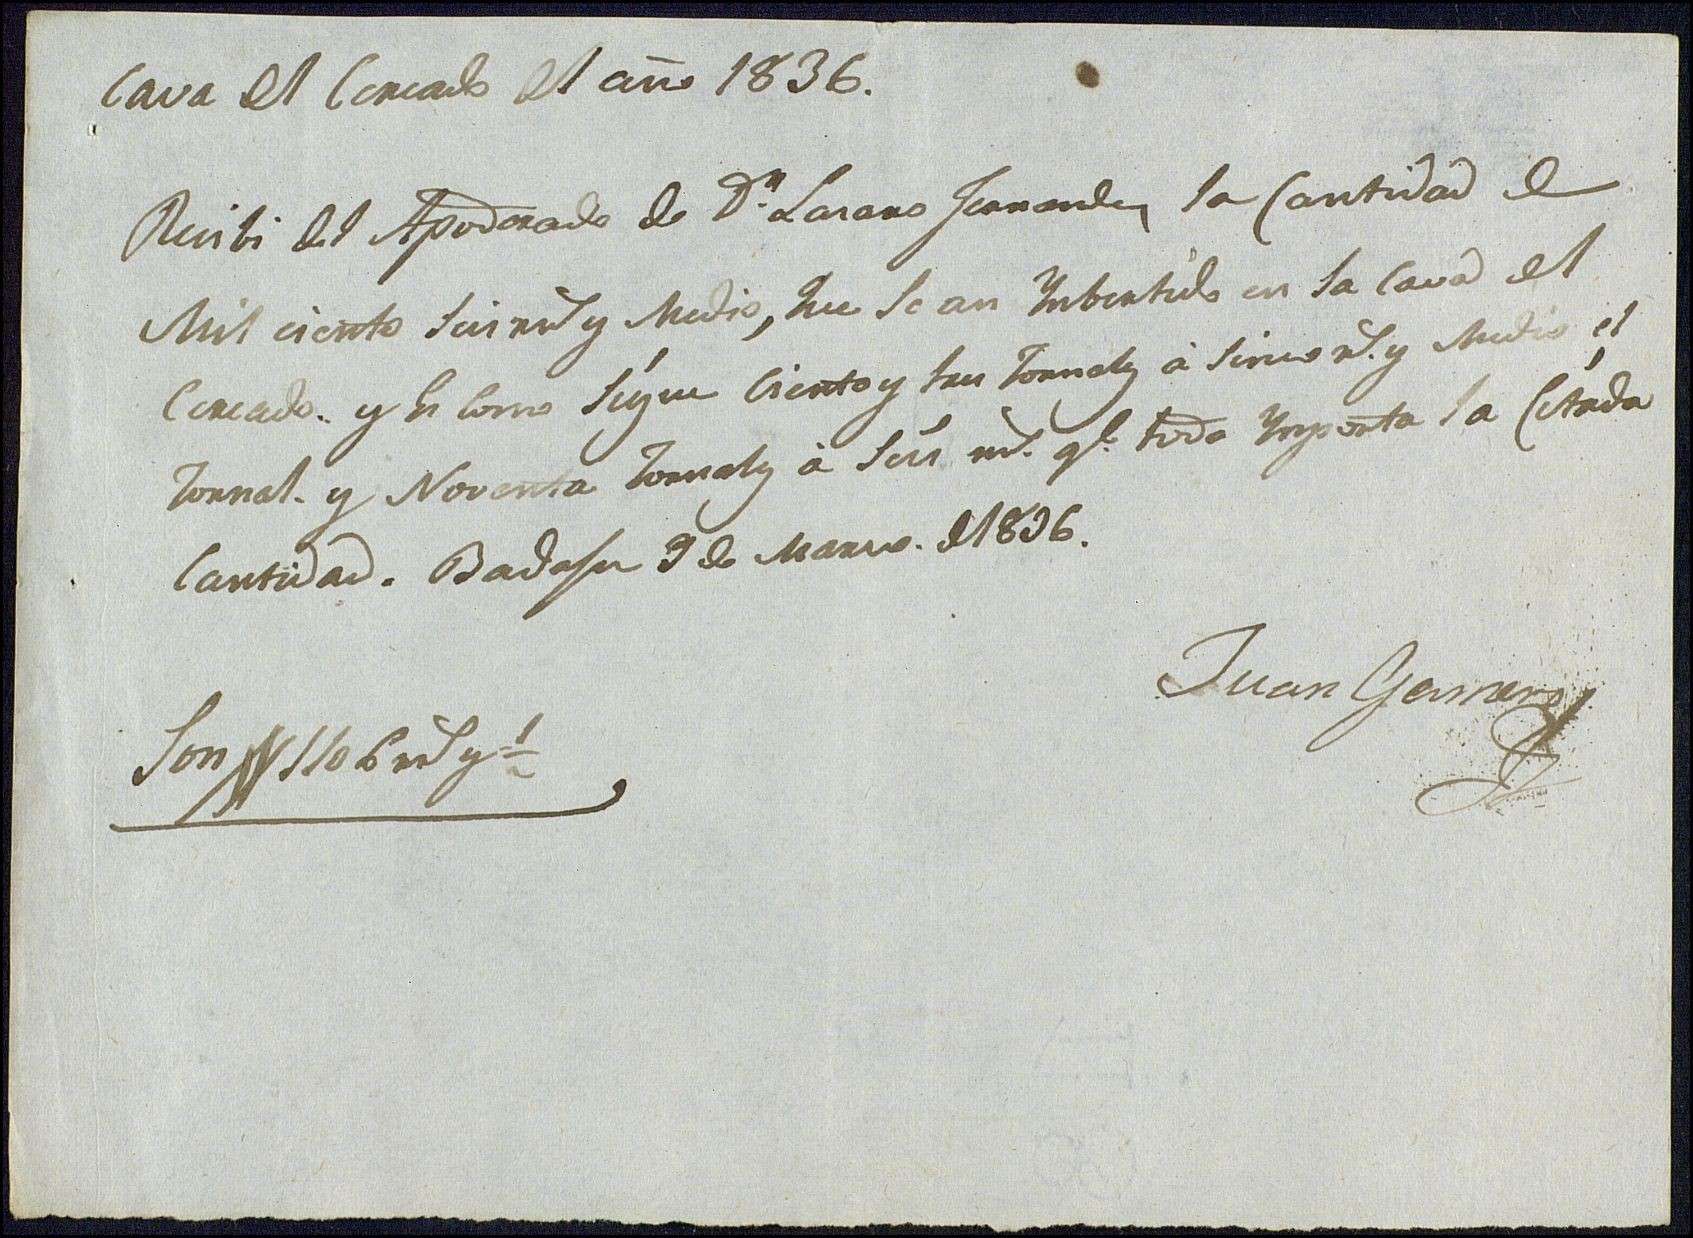 Cava del Cercado del año 1836.
Recibi del Apoderado de Dn. Lasaro Fernandez la Cantidad de
Mil ciento seis rrs. y Medio, que se an Ynbertido en la Cava del
Cercado. y es como sigue Ciento y tres Jornales à sinco rs. y Medio el
Jornal. y Noventa Jornales à seis rrs. qe. todo Ynporta la Citada
Cantidad. Badajos 9 de Marzo. de 1836.
Juan Gamero
Son 1106 rrs. y 1/2